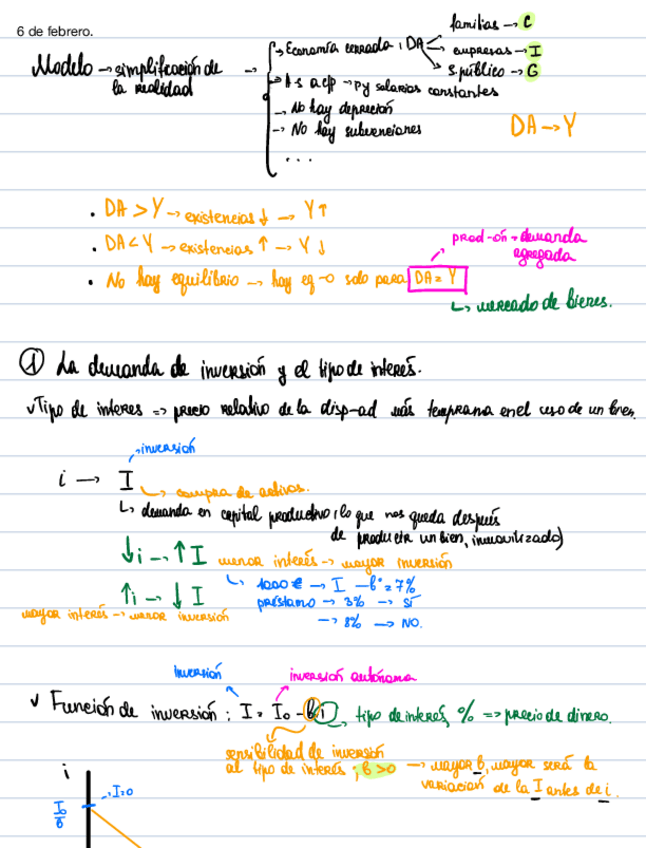 6 de febrero.
familias → C
Economía cerrada, DA
empresas → I
s.público → G
Modelo → simplificación de la realidad →
A s a c/p → P y salarios constantes
→ No hay deprecion
→ No hay subvenciones
...
DA → Y
• DA > Y → existencias ↓ → Y↑
• DA < Y → existencias ↑ → Y ↓
prod-ón = demanda agregada
• No hay equilibrio → hay eq-o solo para DA = Y
↳ mercado de bienes.
① La demanda de inversión y el tipo de interés.
✓Tipo de interes => precio relativo de la disp-ad más temprana en el uso de un bien.
inversión
i → I
↳ compra de activos.
↳ demanda en capital productivo (lo que nos queda después
de producir un bien, inmovilizado)
↓i → ↑I menor interés → mayor inversión
↳ 1000 € → I → bº = 7%
↑i → ↓I
préstamo → 3% → SÍ
mayor interés → menor inversión
→ 8% → NO.
inversión
inversión autónoma
✓ Función de inversión: I = I₀ - bi, tipo de interés, % => precio de dinero.
sensibilidad de inversión
al tipo de interés; b>0 → mayor b, mayor será la
variación de la I antes de i.
i
I=0
I₀/b